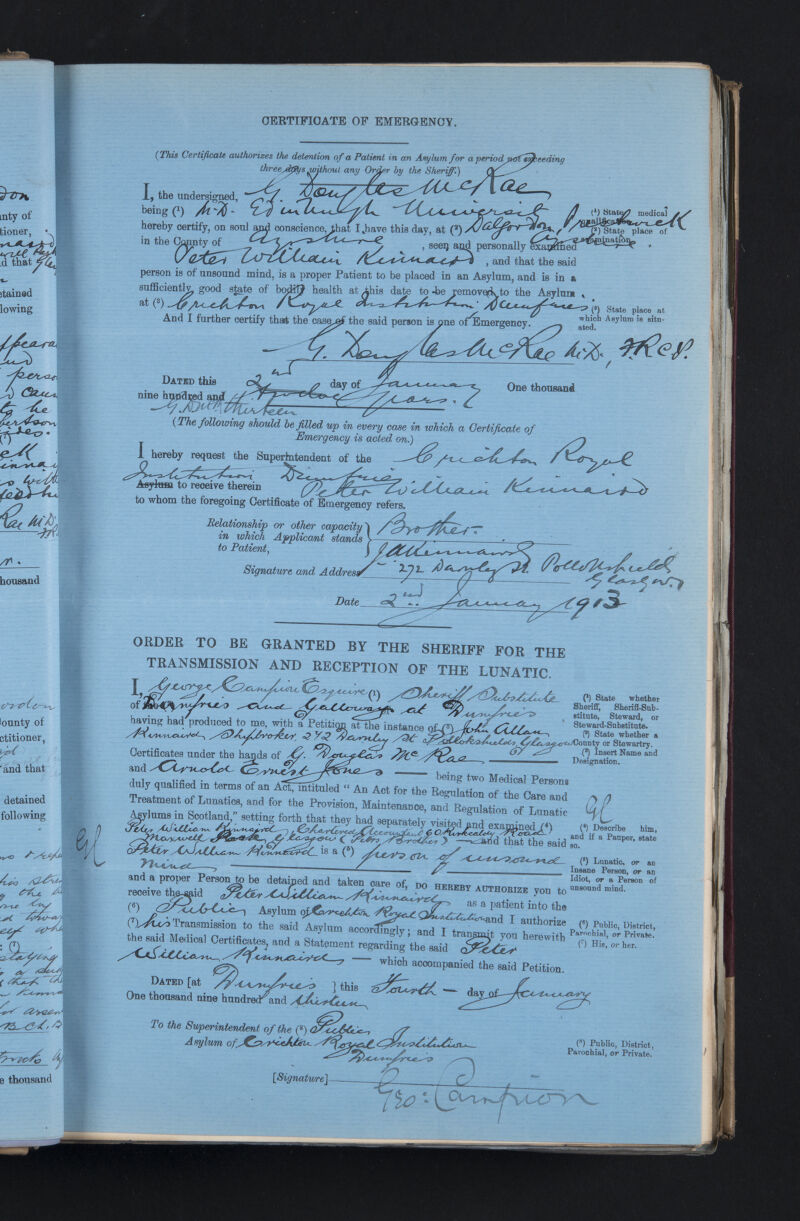 CERTIFICATE OF EMERGENCY.
(This Certificate authorizes the detention of a Patient in an Asylum for a period not exceeding
three days without any Order by the Sheriff.)
I, the undersigned, G Douglas McRae
being (¹) M.D. Edinburgh University (¹) State medical qualification.
hereby certify, on soul and conscience, that I have this day, at (²) Dalgordon, Prestwick (²) State place of examination.
in the County of Ayrshire , seen and personally examined
Peter William Kinnaird , and that the said
person is of unsound mind, is a proper Patient to be placed in an Asylum, and is in a
sufficiently good state of bodily health at this date to be removed to the Asylum
at (³) Crichton Royal Institution Dumfries (³) State place at which Asylum is situated.
And I further certify that the case of the said person is one of Emergency.
G. Douglas McRae M.D., F.R.C.P.
DATED this 2nd day of January One thousand
nine hundred and twelve years.
G. D. thirteen
(The following should be filled up in every case in which a Certificate of
Emergency is acted on.)
I hereby request the Superintendent of the Crichton Royal
Institution Dumfries
Asylum to receive therein Peter William Kinnaird
to whom the foregoing Certificate of Emergency refers.
Relationship or other capacity
in which Applicant stands
to Patient, Brother.
JAKinnaird
Signature and Address 272 Darnley St. Pollokshields
Glasgow
Date 2nd January 1913
ORDER TO BE GRANTED BY THE SHERIFF FOR THE
TRANSMISSION AND RECEPTION OF THE LUNATIC.
I, George Campion Esquire (¹) Sheriff Substitute (¹) State whether Sheriff, Sheriff-Substitute, Steward, or Steward-Substitute.
of Dumfries and Galloway at Dumfries
having had produced to me, with a Petition at the instance of (³) John Allan (²) State whether a County or Stewartry.
Kinnaird Shipbroker 272 Darnley St Pollokshields Glasgow (³) Insert Name and Designation.
Certificates under the hands of G. Douglas Mc Rae
and Arnold Ernest Jones being two Medical Persons
duly qualified in terms of an Act, intituled " An Act for the Regulation of the Care and
Treatment of Lunatics, and for the Provision, Maintenance, and Regulation of Lunatic
Asylums in Scotland," setting forth that they had separately visited and examined (⁴) (⁴) Describe him, and if a Pauper, state so.
Peter William Kinnaird, Chartered Accountant 60 Kirkcaldy Road
Maxwell Park Glasgow ( Brother) and that the said
Peter William Kinnaird is a (⁵) person of unsound (⁵) Lunatic, or an Insane Person, or an Idiot, or a Person of unsound mind.
mind
and a proper Person to be detained and taken care of, DO HEREBY AUTHORIZE you to
receive the said Peter William Kinnaird as a patient into the
(⁶) Public Asylum of Crichton Royal Institution and I authorize (⁶) Public, District, Parochial, or Private.
(⁷) his Transmission to the said Asylum accordingly; and I transmit you herewith (⁷) His, or her.
the said Medical Certificates, and a Statement regarding the said Peter
William Kinnaird which accompanied the said Petition.
DATED [at Dumfries ] this Fourth day of January
One thousand nine hundred and thirteen
To the Superintendent of the (⁸) Public
Asylum of Crichton Royal Institution (⁸) Public, District, Parochial, or Private.
Dumfries
[Signature] Geo: Campion